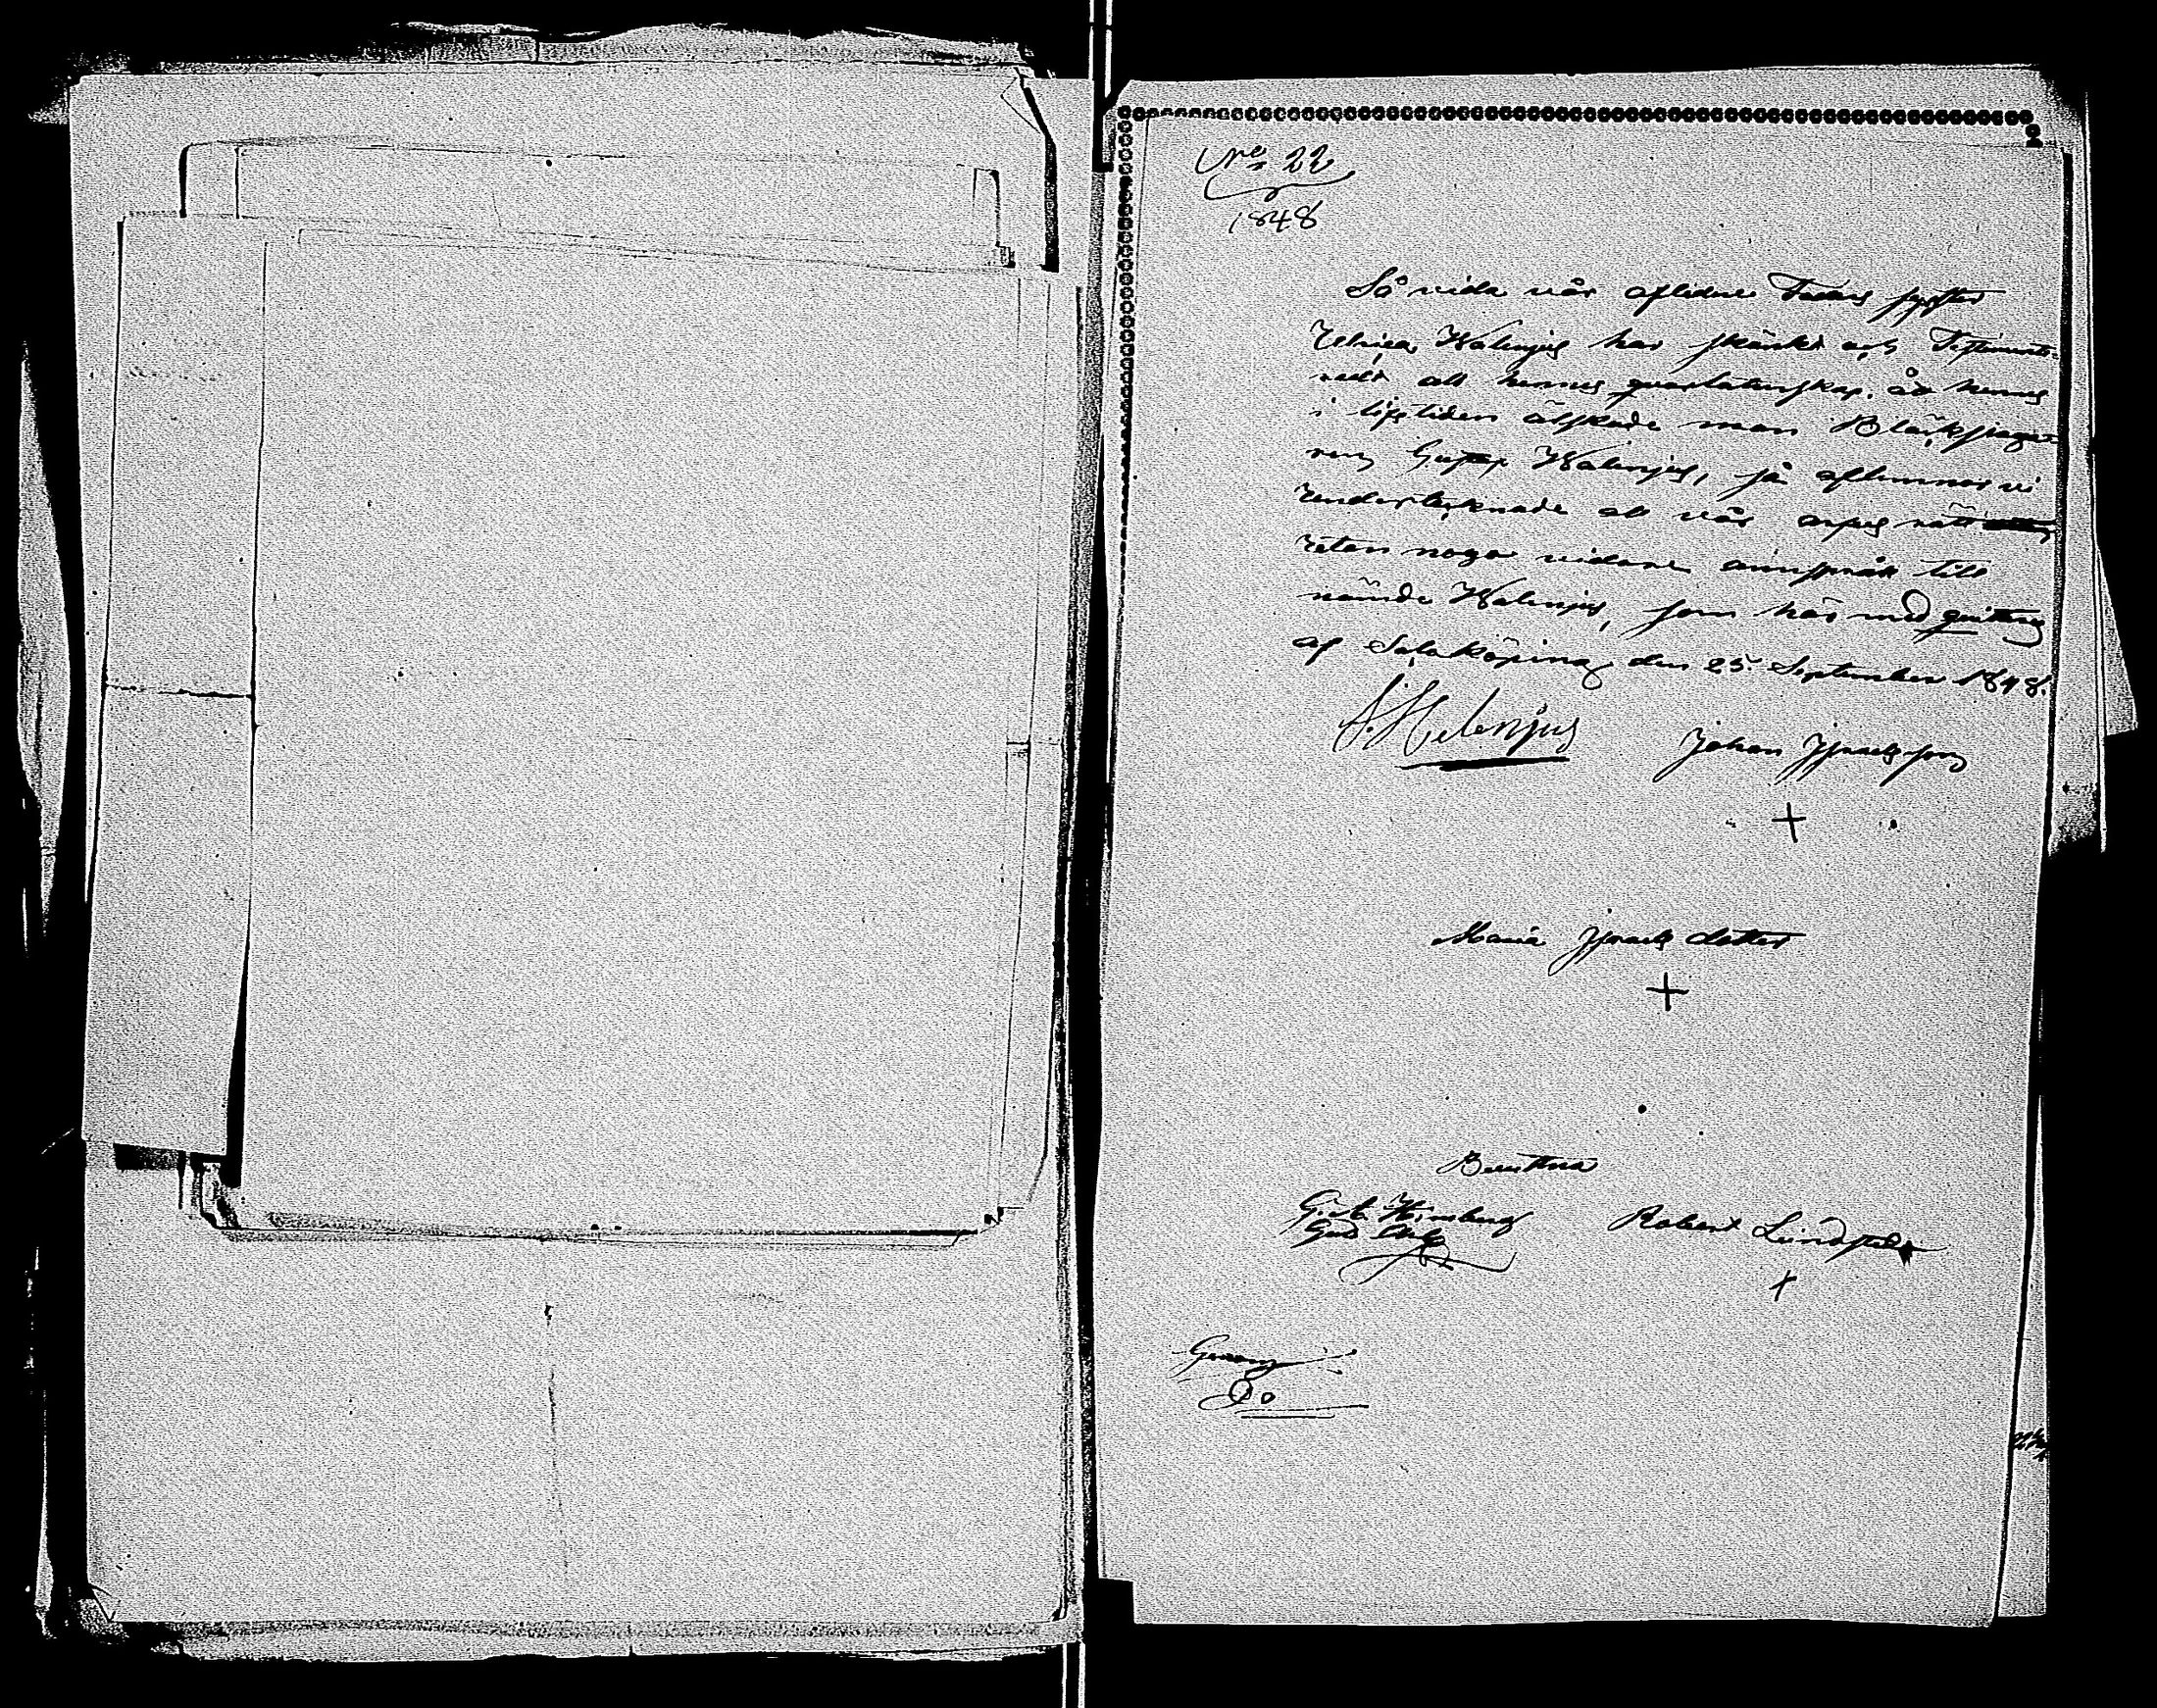 No 22
1848
Så vida vår aflidne Faders syster
Ulrica Walenjus har skänkt och Testamente-
radt all hennes qvarlatenskap, åt hennes
i lifstiden älskade man Bläckslaga-
ren Gustaf Walenjus, så aflemnar vi
Undertecknade all vår arfs rätt
utan noga vidare ainspråk till
nämde Walenjus, som här med qvitteras
af Salo Köping den 25 September 1848.
Johan Jsraels son
+
Maria Jsraels dotter
+
Bevittna
Robert Lindstedt
+